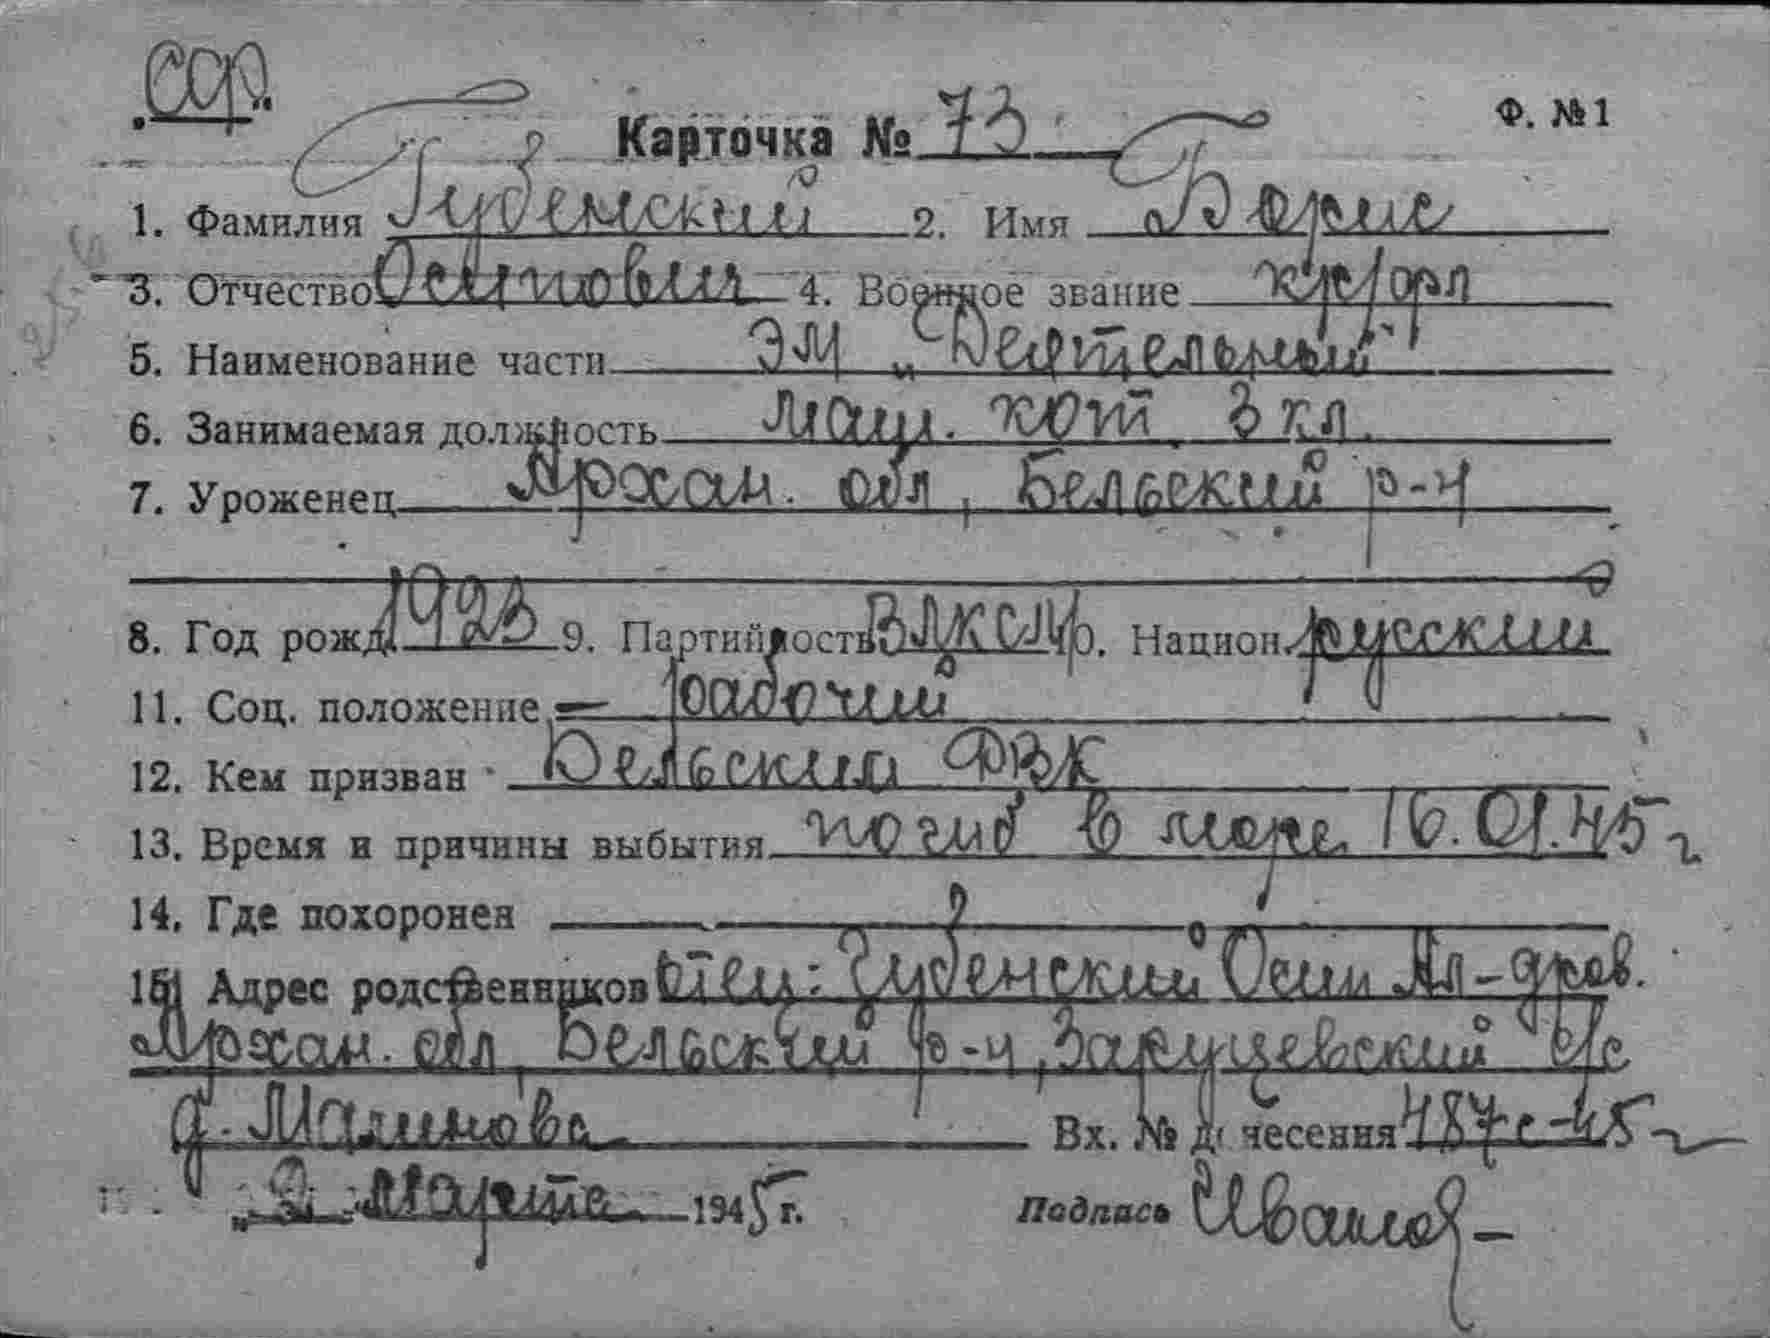 ССФ.
Карточка № 73 Ф. №1
1. Фамилия Губенский 2. Имя Борис
3. Отчество Осипович 4. Военное звание кр/фл
5. Наименование части ЭМ „Деятельный"
6. Занимаемая должность маш. кот. 3 кл.
7. Уроженец Архан. обл, Вельский р-н
8. Год рожд. 1923 9. Партийность ВЛКСМ 10. Национ. русский
11. Соц. положение — рабочий
12. Кем призван Вельским РВК
13. Время и причины выбытия погиб в море 16.01.45 г
14. Где похоронен
15. Адрес родственников Отец: Губенский Осип Ал-дров.
Архан. обл, Вельский р-н, с/с
д. Малинова Вх. № донесения 487с-45 г
„2" марта 1945 г. Подпись Иванов